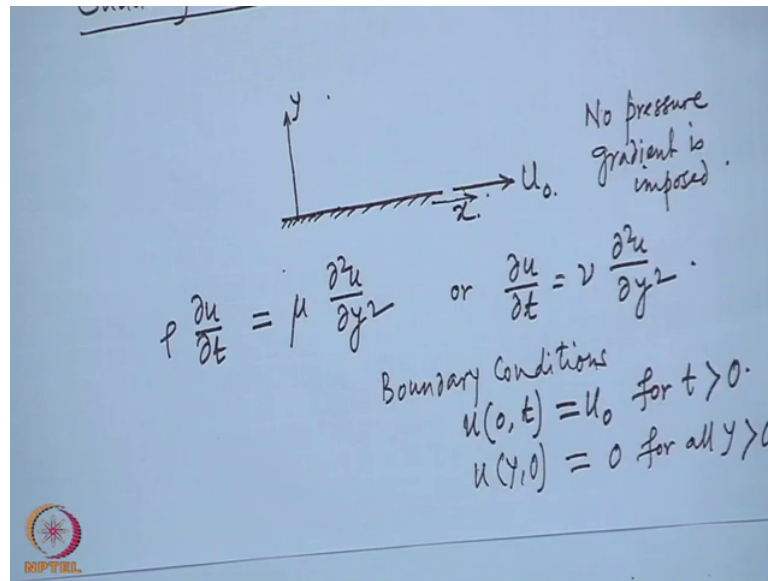 y
No pressure
gradient is
imposed.
U₀.
x.
ρ ∂u/∂t = μ ∂²u/∂y² or ∂u/∂t = ν ∂²u/∂y².
Boundary Conditions
u(0, t) = U₀ for t > 0.
u(y, 0) = 0 for all y > 0
NPTEL